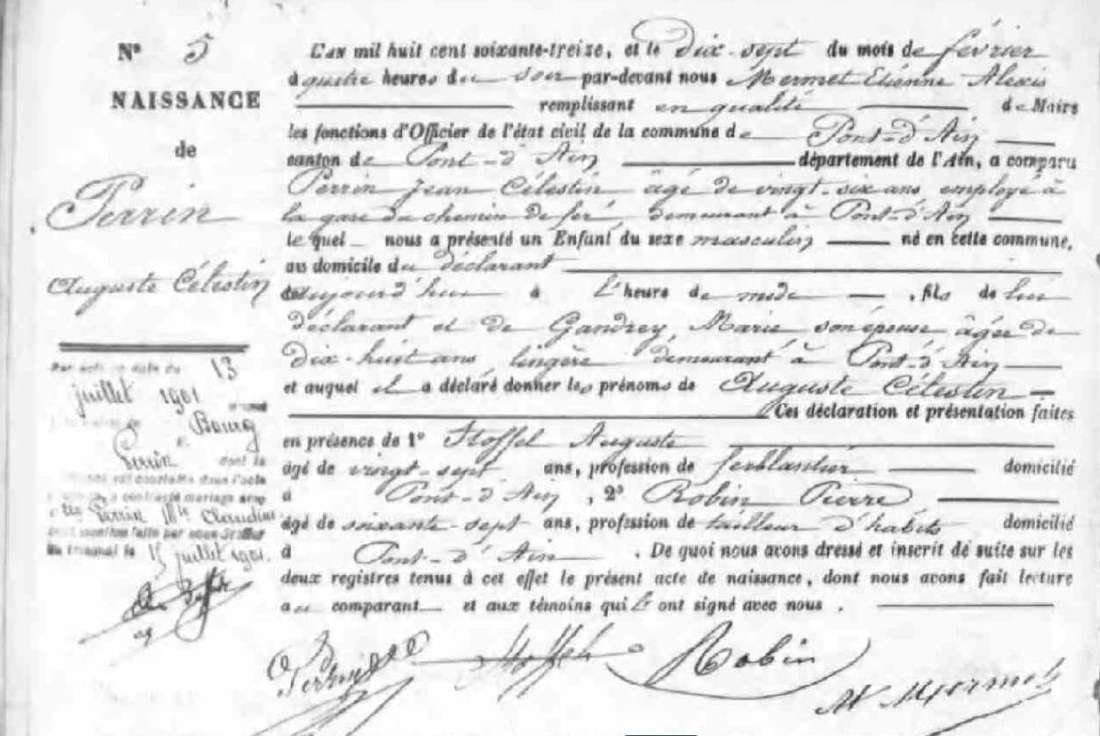 N° 5
NAISSANCE
de
Perrin
Auguste Célestin
Par acte en date du 13
juillet 1901
Bourg
Perrin dont la
a contracté mariage avec
Perrin Mie Claudine
mention faite par nous Greffier
du tribunal le 15 juillet 1901.
L'an mil huit cent soixante-treize, et le dix-sept du mois de février
à quatre heures du soir par-devant nous Mermet Etienne Alexis
remplissant en qualité de Maire
les fonctions d'Officier de l'état civil de la commune de Pont-d'Ain
canton de Pont-d'Ain département de l'Ain, a comparu
Perrin Jean Célestin âgé de vingt-six ans, employé à
la gare du chemin de fer, demeurant à Pont-d'Ain
lequel nous a présenté un Enfant du sexe masculin né en cette commune,
au domicile du déclarant
aujourd'hui à l'heure de midi, fils de lui
déclarant et de Gandrey, Marie son épouse âgée de
dix-huit ans, lingère demeurant à Pont-d'Ain
et auquel il a déclaré donner les prénoms de Auguste Célestin
Ces déclaration et présentation faites
en présence de 1° Stoffel Auguste
âgé de vingt-sept ans, profession de ferblantier domicilié
à Pont-d'Ain, 2° Robin Pierre
âgé de soixante-sept ans, profession de tailleur d'habits domicilié
à Pont-d'Ain. De quoi nous avons dressé et inscrit de suite sur les
deux registres tenus à cet effet le présent acte de naissance, dont nous avons fait lecture
au comparant et aux témoins qui ont signé avec nous.
Stoffel Robin
Mermet